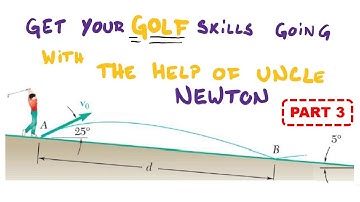 GET YOUR GOLF SKILLS GOING
WITH THE HELP OF UNCLE
NEWTON
PART 3
v₀
A
25°
B
5°
d